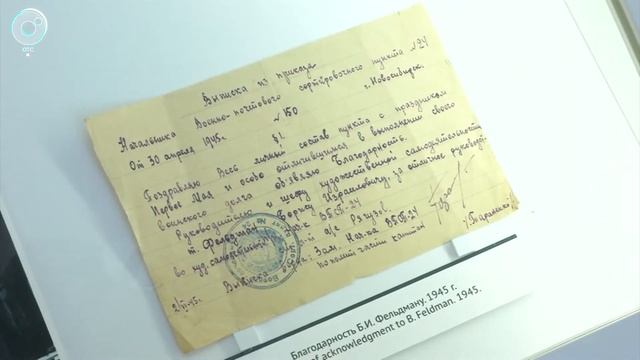 ОТС
Выписка из приказа
Начальника Военно-почтового сортировочного пункта №24
От 30 апреля 1945г. №150 г. Новосибирск.
§1.
Поздравляю весь личный состав пункта с праздником
Первое Мая и особо отличившимся в выполнении своего
воинского долга объявляю благодарность.
Руководителю и шефу художественной самодеятельности
т. Фельдман Борису Израилевичу, за отличное руководство
во худ. самодеятельной
Зам. Нач-ка ВПСП-24
по политчасти капитан
Благодарность Б.И. Фельдману. 1945 г.
of acknowledgment to B. Feldman. 1945.